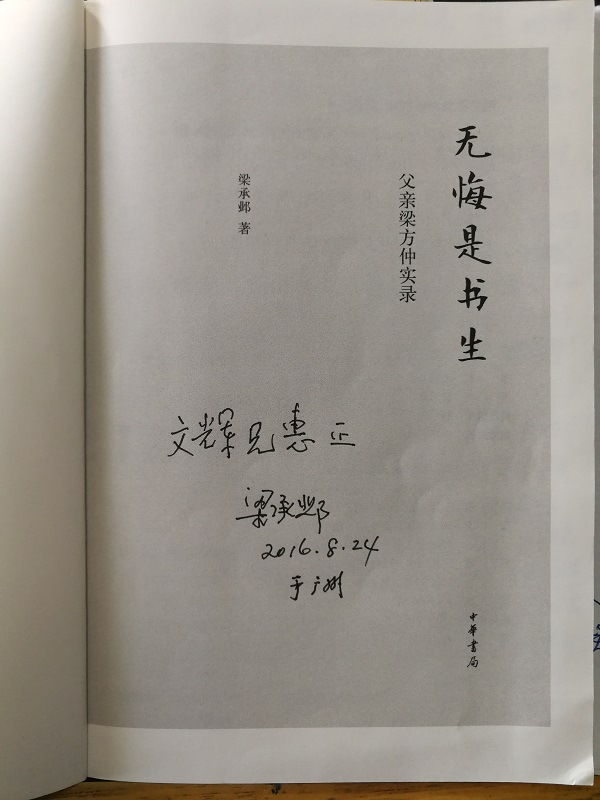 无悔是书生
父亲梁方仲实录
梁承邺 著
文辉兄惠正
梁承邺
2016.8.24
于广州
中华书局